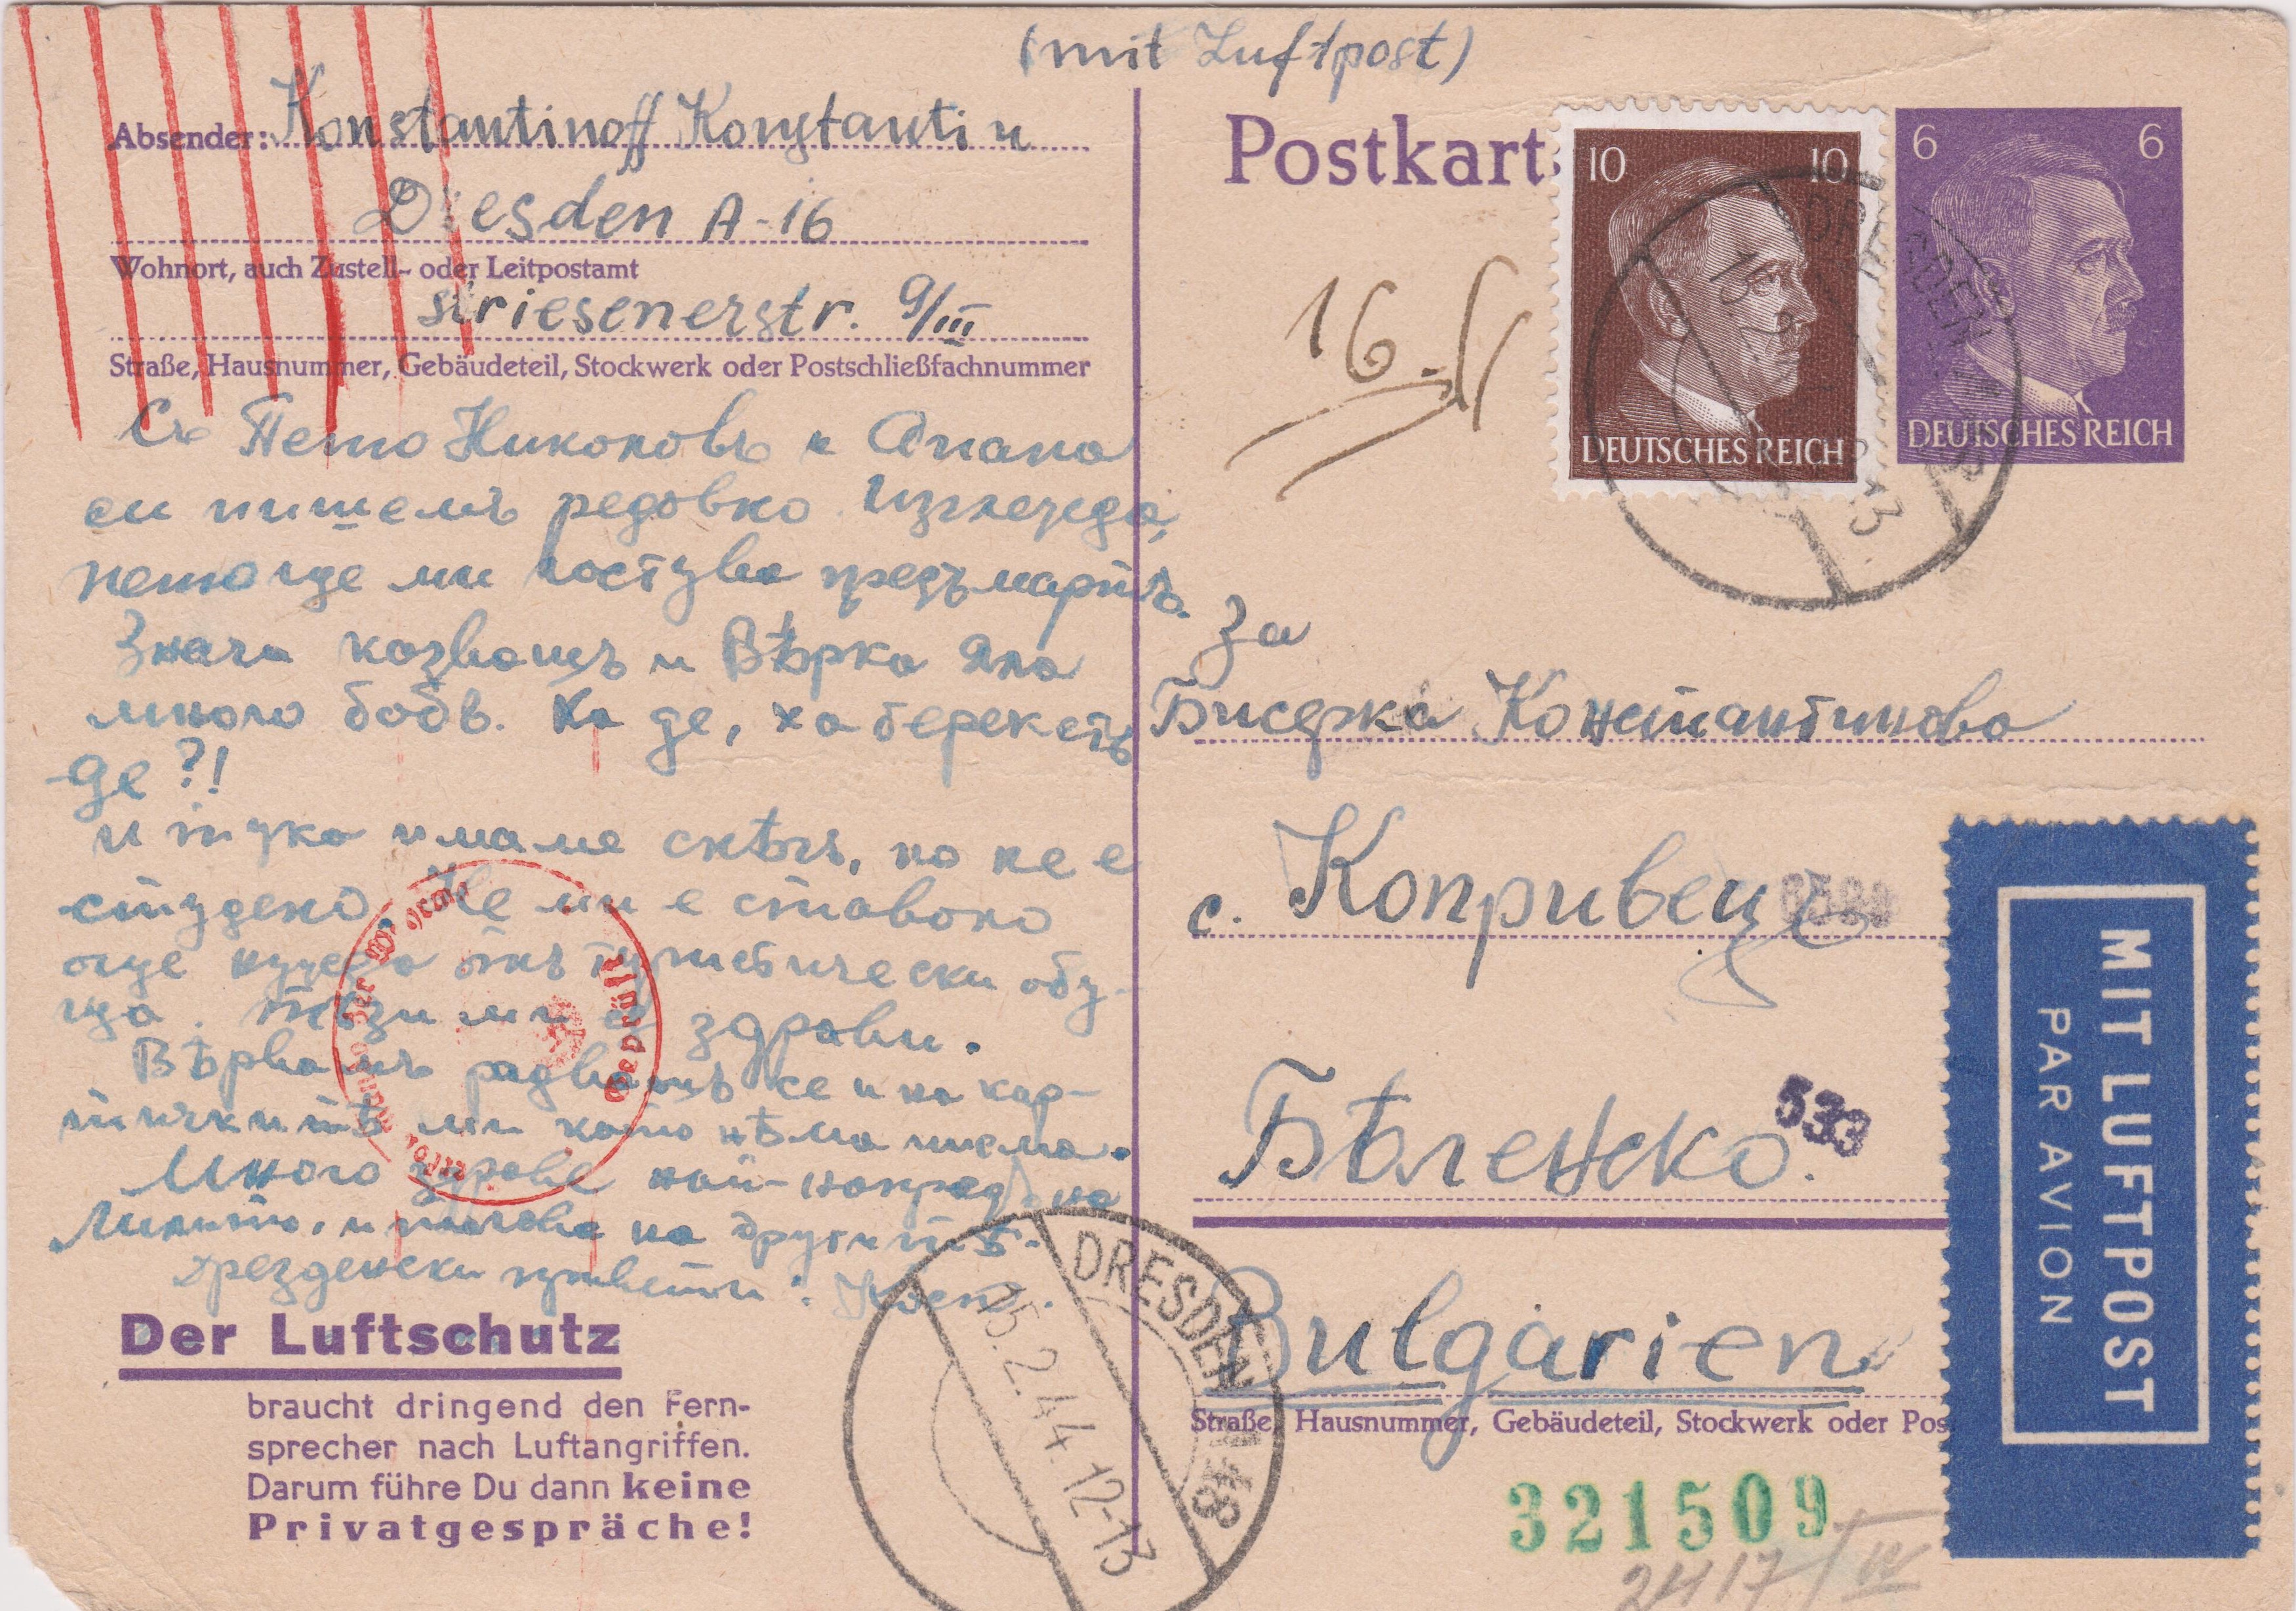 (mit Luftpost)
Absender: Konstantinoff Konstantin
Dresden A-16
Wohnort, auch Zustell- oder Leitpostamt
Striesenerstr. 9/III
Straße, Hausnummer, Gebäudeteil, Stockwerk oder Postschließfachnummer
Съ Петю Николовъ и
си пишемъ редовно. Изглежда,
ми предъ мартъ.
Значи казвашъ и Вѣрка яла
много бобъ. Ха де, ха берекетъ
де?!
И тука имаме снѣгъ, но не е
студено. Не ми е ставало
още нужда отъ туристически обу-
ща. Тѣзи ми са здрави.
Вѣрвамъ радвашъ се и на кар-
тичкитѣ ми като нѣма писма.
Много здраве най-напредъ на
и тогава на другитѣ.
Дрезденски привети:
Der Luftschutz
braucht dringend den Fern-
sprecher nach Luftangriffen.
Darum führe Du dann keine
Privatgespräche!
Postkart
10 10
DEUTSCHES REICH
6 6
DEUTSCHES REICH
16.
За
Бисерка Константинова
с. Копривец
Бѣленско.
533
Bulgarien
Straße, Hausnummer, Gebäudeteil, Stockwerk oder Pos
MIT LUFTPOST
PAR AVION
DRESDEN
15.2.44.12-13
321509
2417/IV